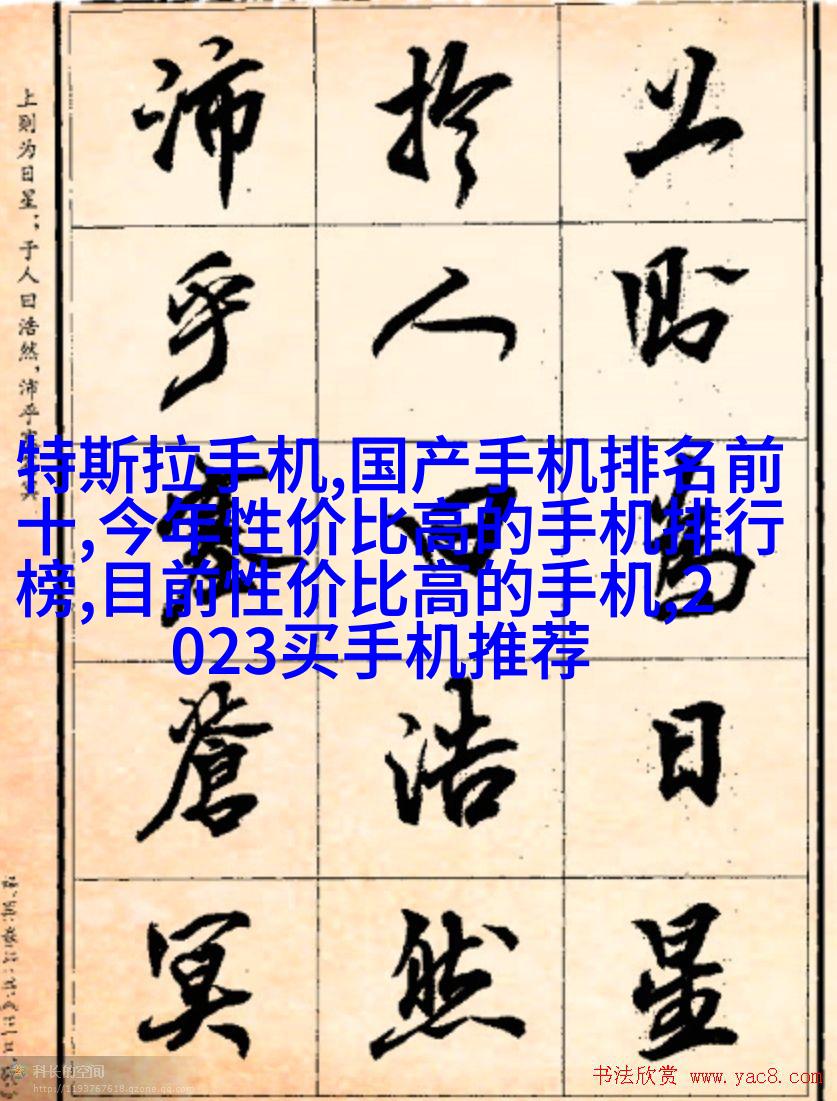 上则为日星；于人曰浩然，沛乎
上則為日星
於人曰浩然
沛乎塞蒼冥
特斯拉手机,国产手机排名前
十,今年性价比高的手机排行
榜,目前性价比高的手机,2
023买手机推荐
科长的空间
http://1193767618.qzone.qq.com
书法欣赏 www.yac8.com